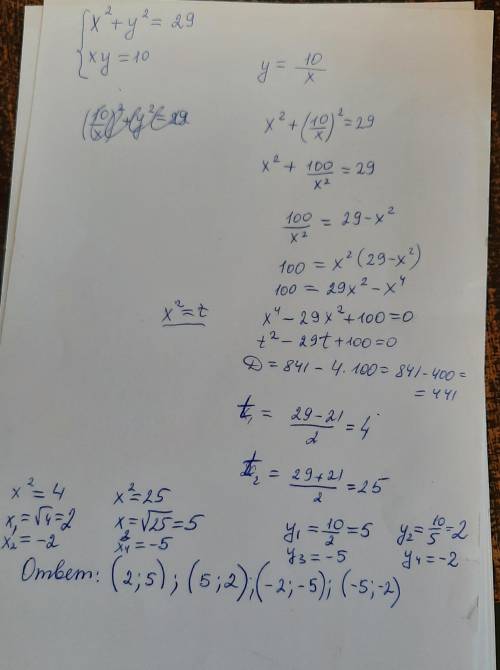 x² + y² = 29
xy = 10
y = 10/x
(10/x)² + y² = 29
x² + (10/x)² = 29
x² + 100/x² = 29
100/x² = 29 - x²
100 = x²(29 - x²)
100 = 29x² - x⁴
x² = t
x⁴ - 29x² + 100 = 0
t² - 29t + 100 = 0
D = 841 - 4 · 100 = 841 - 400 =
= 441
t₁ = (29 - 21)/2 = 4
t₂ = (29 + 21)/2 = 25
x² = 4 x² = 25
x₁ = √4 = 2 x = √25 = 5 y₁ = 10/2 = 5 y₂ = 10/5 = 2
x₂ = -2 x₄ = -5 y₃ = -5 y₄ = -2
Ответ: (2; 5); (5; 2); (-2; -5); (-5; -2)